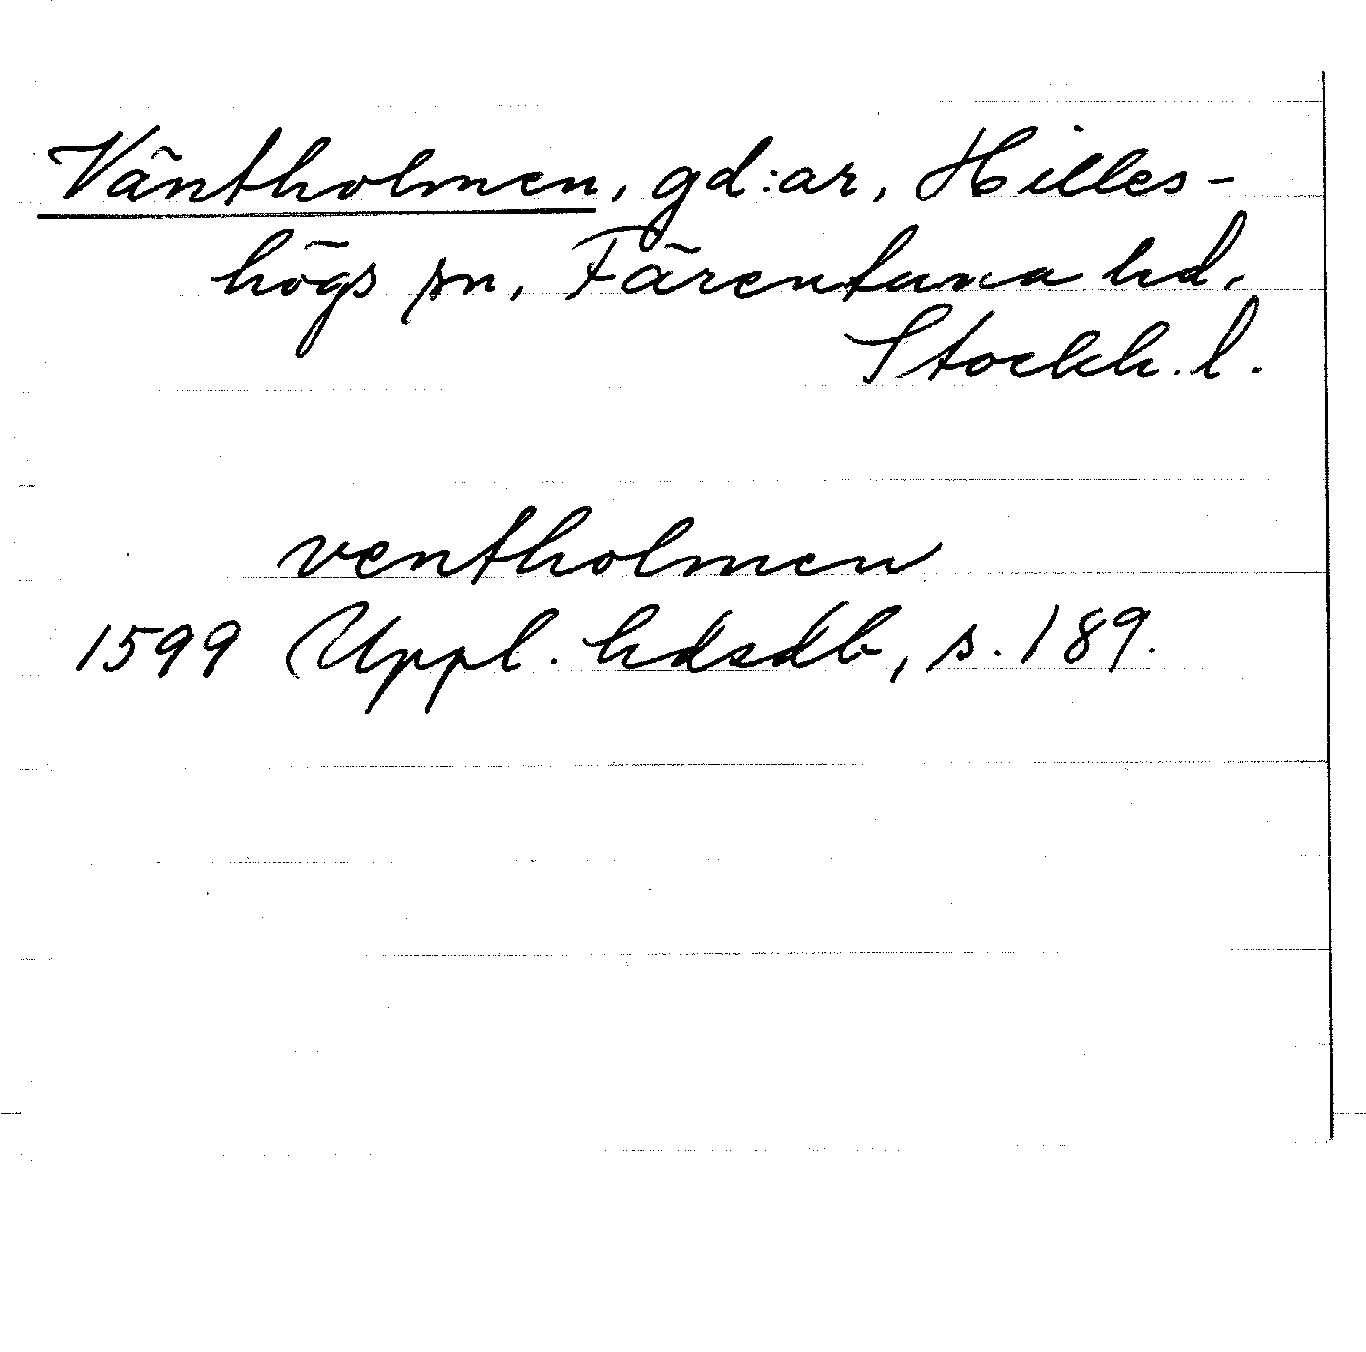 Väntholmen, gd:ar, Hilles-
högs sn, Färentuna hd,
Stockh. l.
ventholmen
1599 Uppl. hdsdb, s. 189.